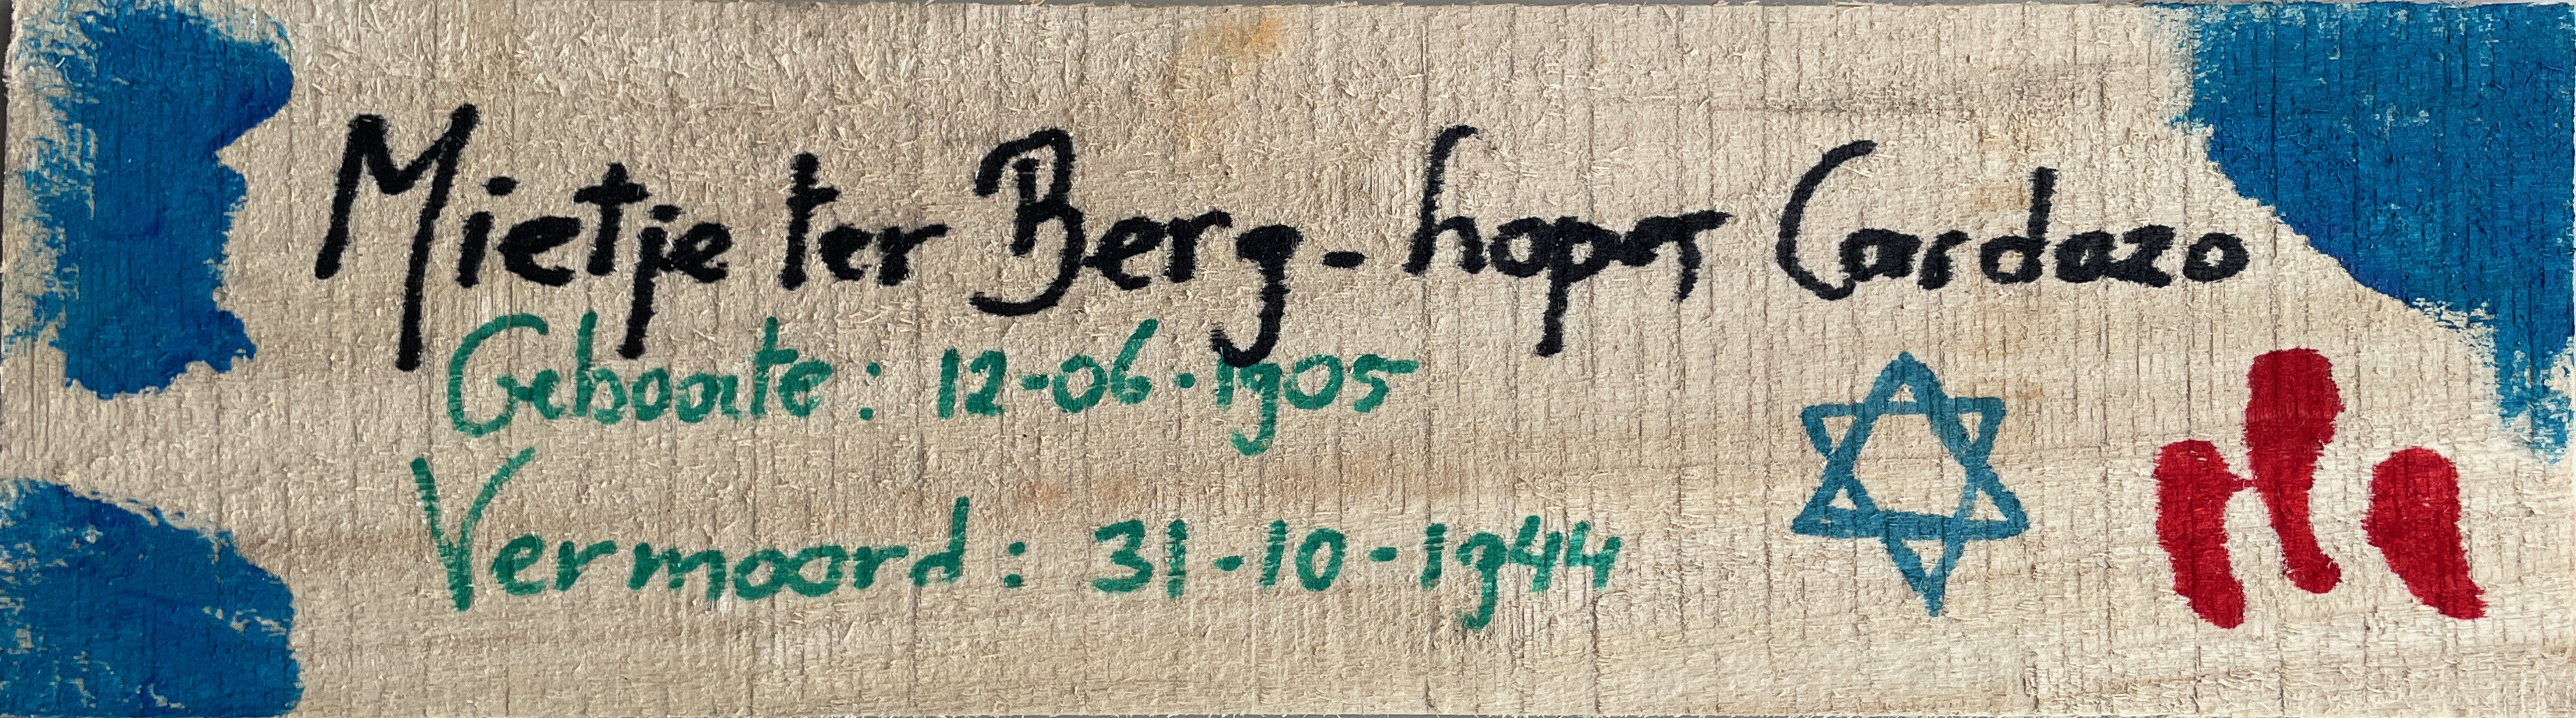 Mietje ter Berg - hoper Cardozo
Geboorte: 12-06-1905
Vermoord: 31-10-1944